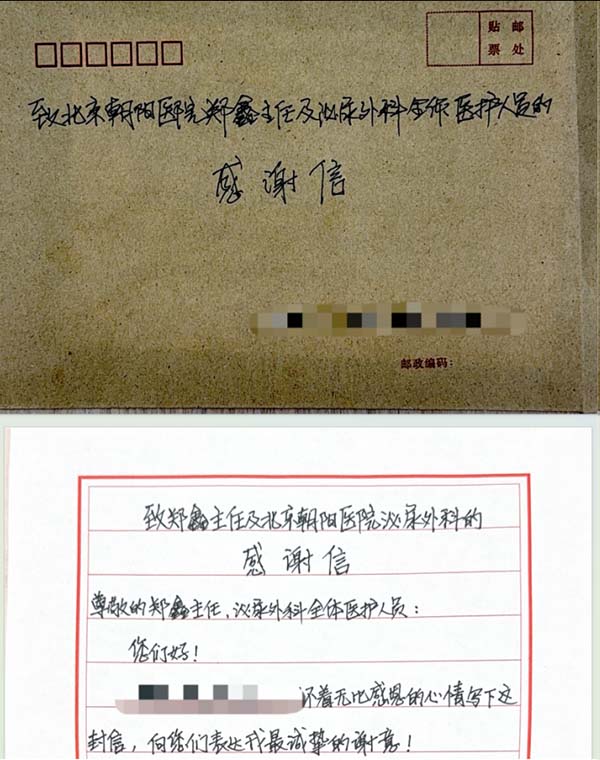 贴 邮
票 处
致北京朝阳医院郑鑫主任及泌尿外科全体医护人员的
感谢信
邮政编码:
致郑鑫主任及北京朝阳医院泌尿外科的
感谢信
尊敬的郑鑫主任、泌尿外科全体医护人员:
您们好!
怀着无比感恩的心情写下这
封信,向您们表达我最诚挚的谢意!